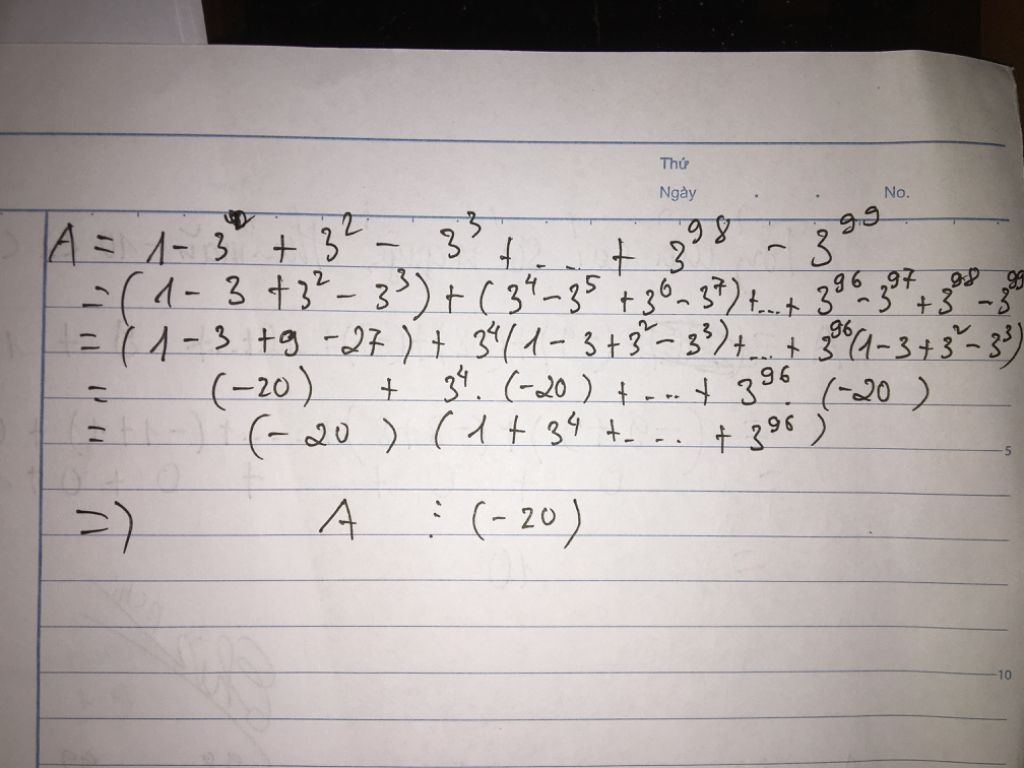 Thứ
Ngày . . No.
A = 1 - 3 + 3² - 3³ + ... + 3⁹⁸ - 3⁹⁹
= (1 - 3 + 3² - 3³) + (3⁴ - 3⁵ + 3⁶ - 3⁷) + ... + 3⁹⁶ - 3⁹⁷ + 3⁹⁸ - 3⁹⁹
= (1 - 3 + 9 - 27) + 3⁴(1 - 3 + 3² - 3³) + ... + 3⁹⁶(1 - 3 + 3² - 3³)
= (-20) + 3⁴. (-20) + ... + 3⁹⁶. (-20)
= (-20) (1 + 3⁴ + .... + 3⁹⁶)
5
=) A ⋮ (-20)
10